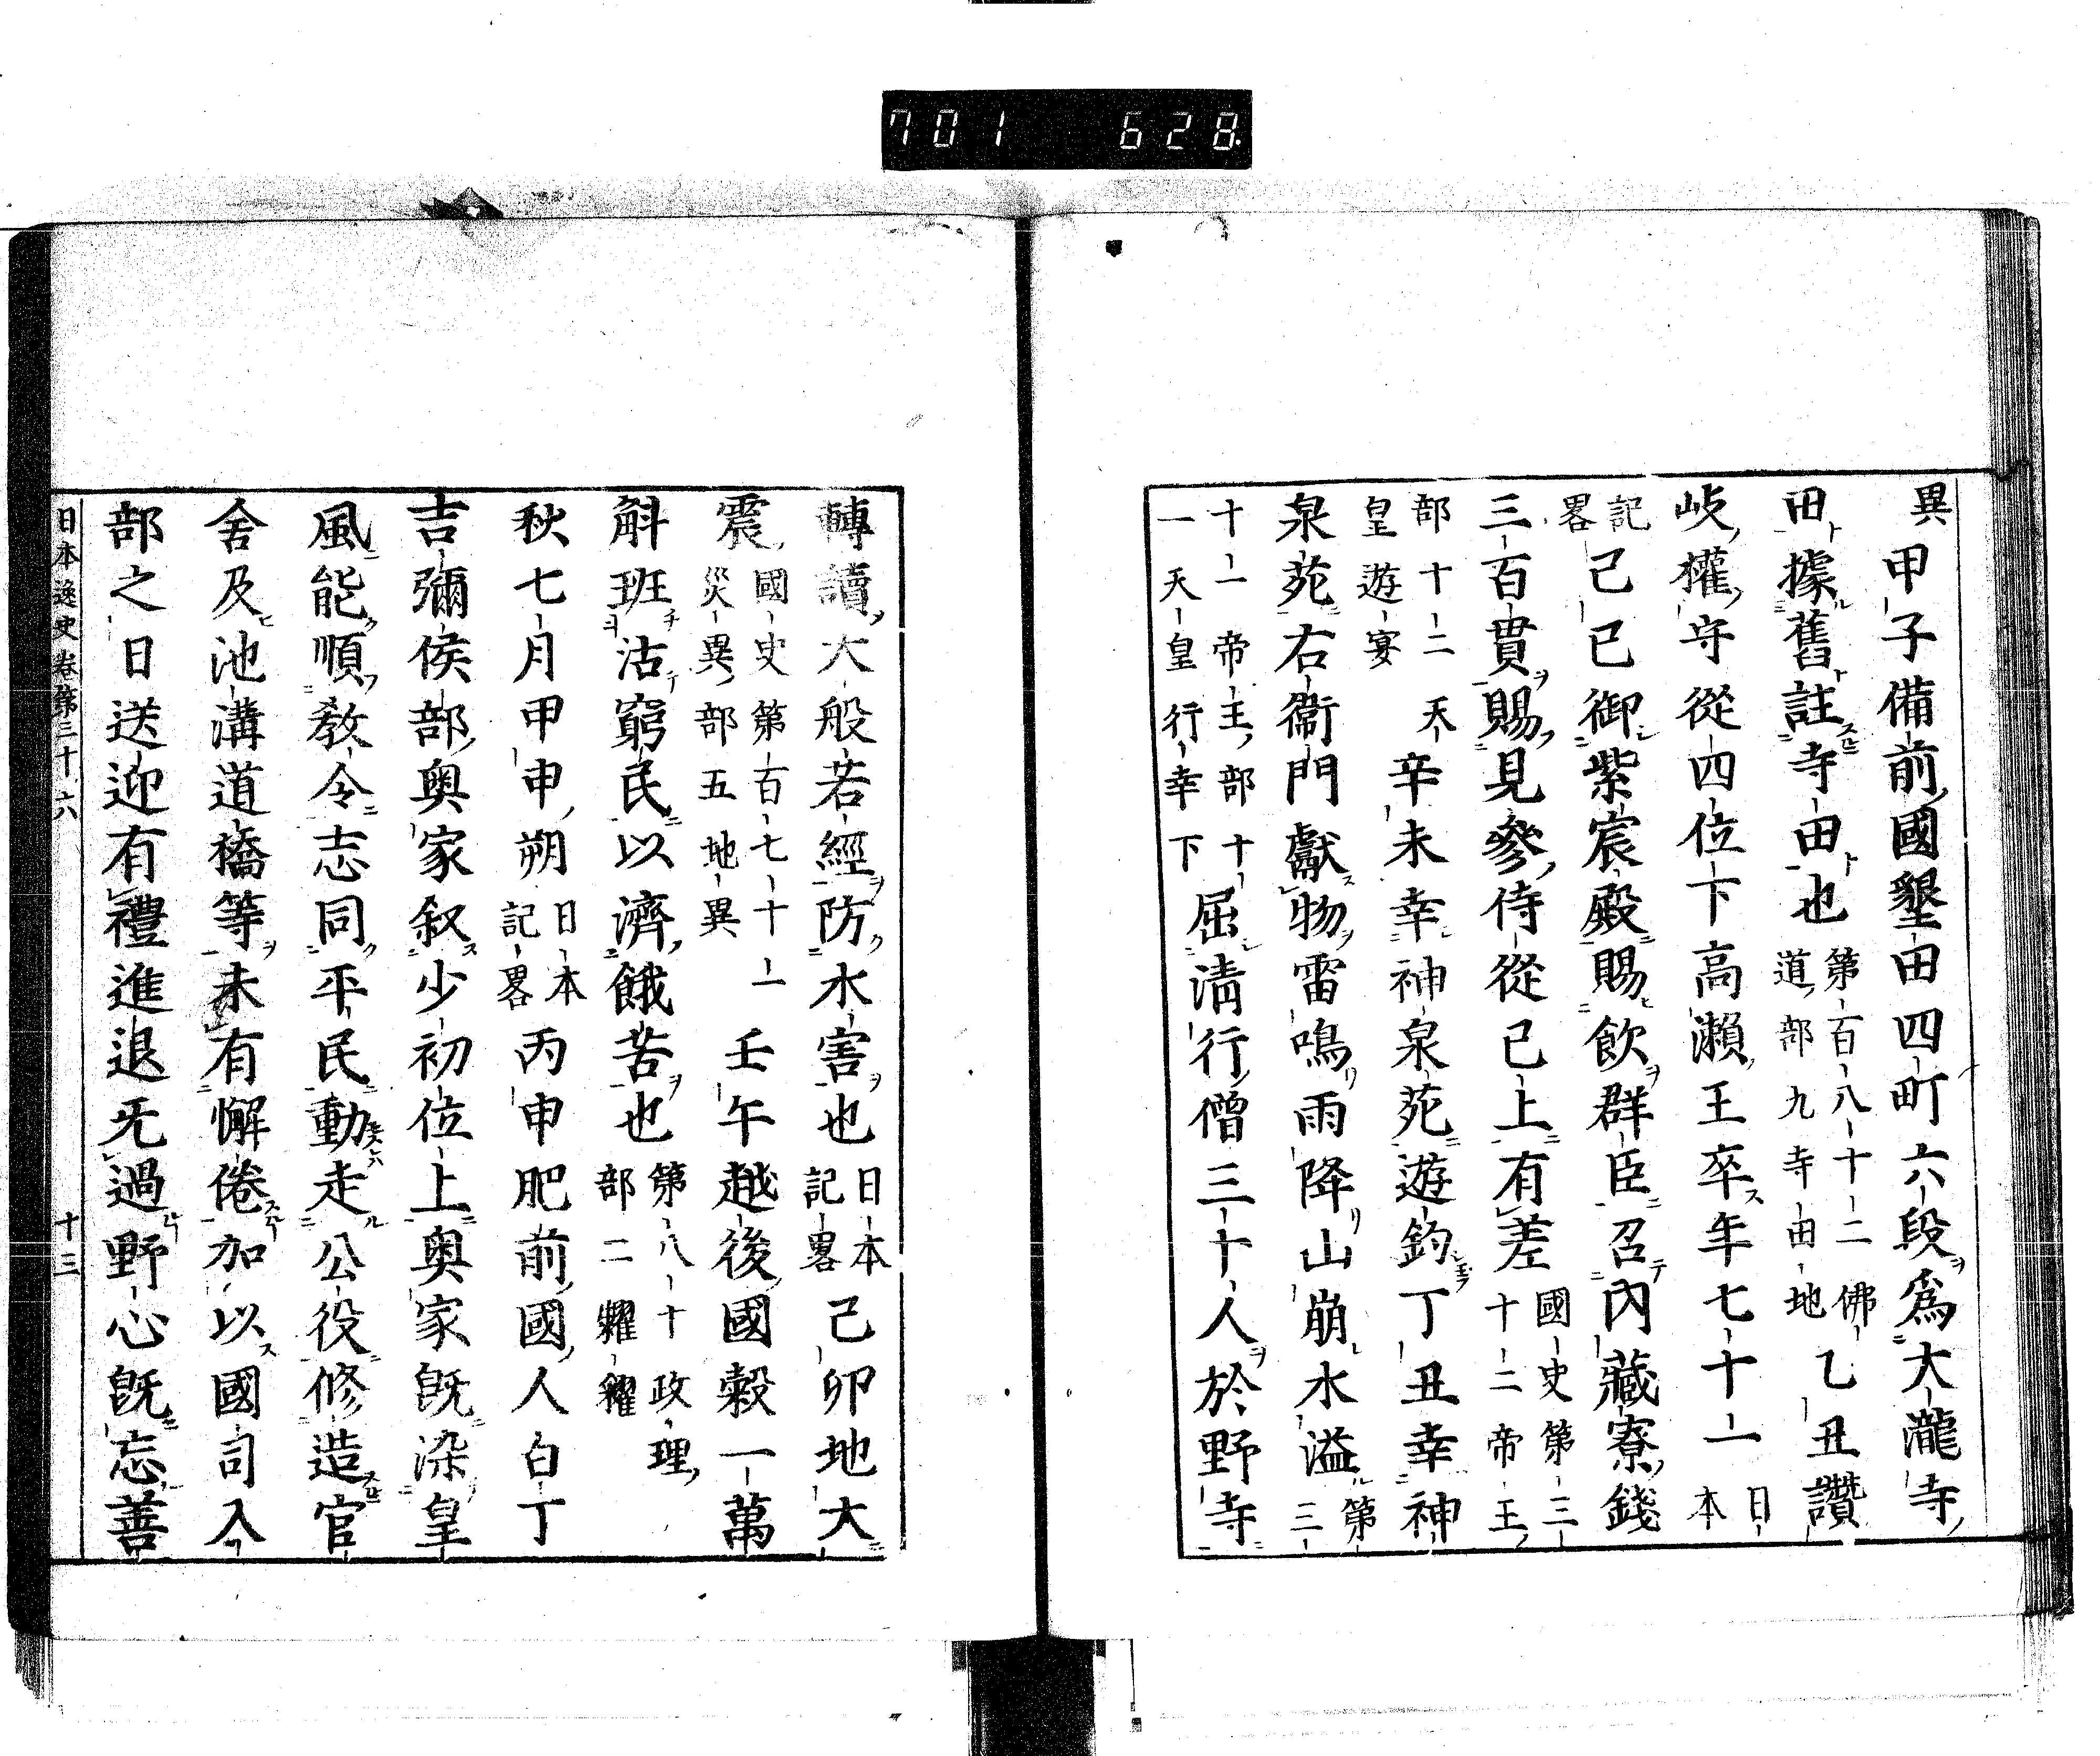 701 628
異 甲子備前國墾田四町六段為大瀧寺
田據舊註寺田也 第百八十二佛道部九寺田地 乙丑讚
岐權守從四位下高瀬王卒年七十一 日本
記畧 己巳御紫宸殿賜飲群臣召內藏寮錢
三百貫賜見參侍從已上有差 國史第三十二帝王
部十二天皇遊宴 辛未幸神泉苑遊釣丁丑幸神
泉苑右衞門獻物雷鳴雨降山崩水溢 第三
十一帝王部十一天皇行幸下 屈淸行僧三十人於野寺
轉讀大般若經防水害也 日本記畧 己卯地大
震 國史第百七十一災異部五地異 壬午越後國穀一萬
斛班沽窮民以濟餓苦也 第八十政理部二糶糴
秋七月甲申朔 日本記畧 丙申肥前國人白丁
吉彌侯部奥家叙少初位上奥家旣染皇
風能順敎令志同平民動走公役修造官
舍及池溝道橋等未有懈倦加以國司入
部之日送迎有禮進退无過野心旣忘善
日本逸史卷第三十六 十三